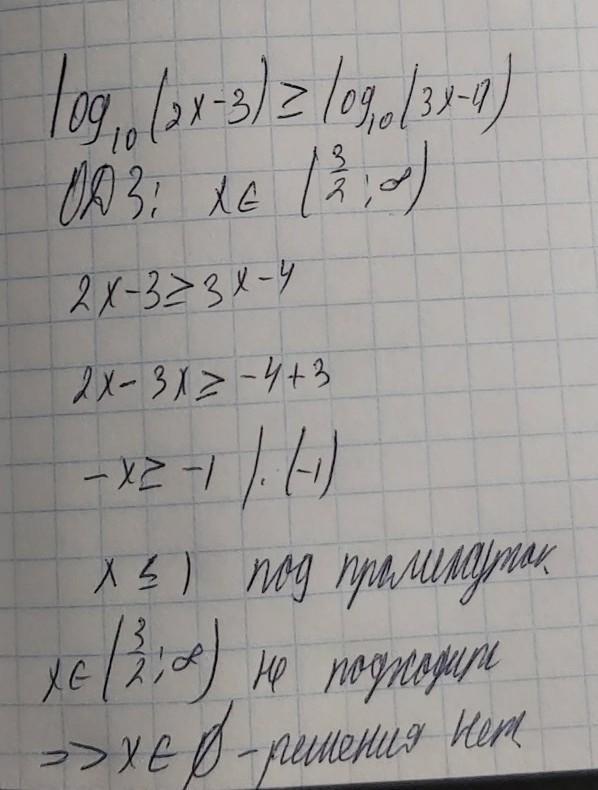 log₁₀(2x-3) ≥ log₁₀(3x-4)
ОДЗ: x∈ (3/2; ∞)
2x-3≥3x-4
2x-3x≥-4+3
-x≥-1 |·(-1)
x≤1 под промежуток
x∈(3/2; ∞) не подходит
=>x∈∅-решения нет